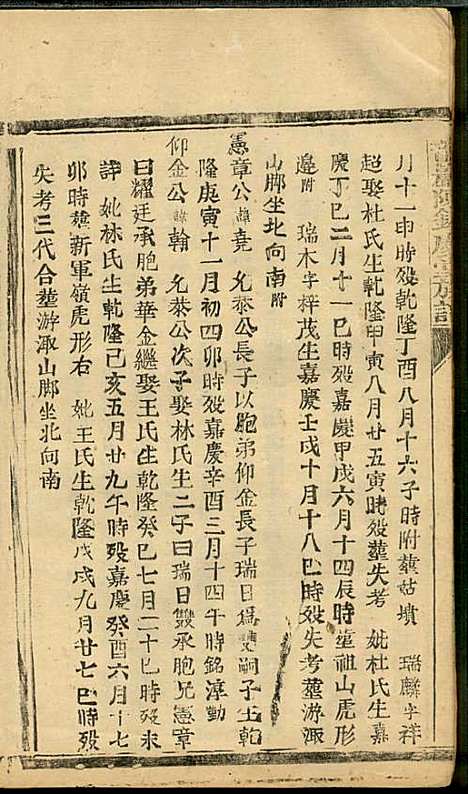 月十一申時殁乾隆丁酉八月十六子時附塟姑墳 瑞麟字祥
超娶杜氏生乾隆甲寅八月廿五寅時殁塟失考 妣杜氏生嘉
慶丁巳二月十一巳時殁嘉慶甲戌六月十四辰時塟祖山虎形
邉附 瑞木字梓茂生嘉慶壬戌十月十八巳時殁失考塟游溈
山脚坐北向南附
憲章公諱堯 允恭公長子以胞弟仰金長子瑞日爲雙嗣子生乾
隆庚寅十一月初四卯時殁嘉慶辛酉三月十四午時銘淳勤
仰金公諱翰 允恭公次子娶林氏生二子曰瑞日雙承胞兄憲章
曰耀廷承胞弟華金繼娶王氏生乾隆癸巳七月二十巳時殁未
詳 妣林氏生乾隆己亥五月廿九午時殁嘉慶癸酉六月十七
卯時塟新軍嶺虎形右 妣王氏生乾隆戊戌九月廿七巳時殁
失考三代合塟游溈山脚坐北向南